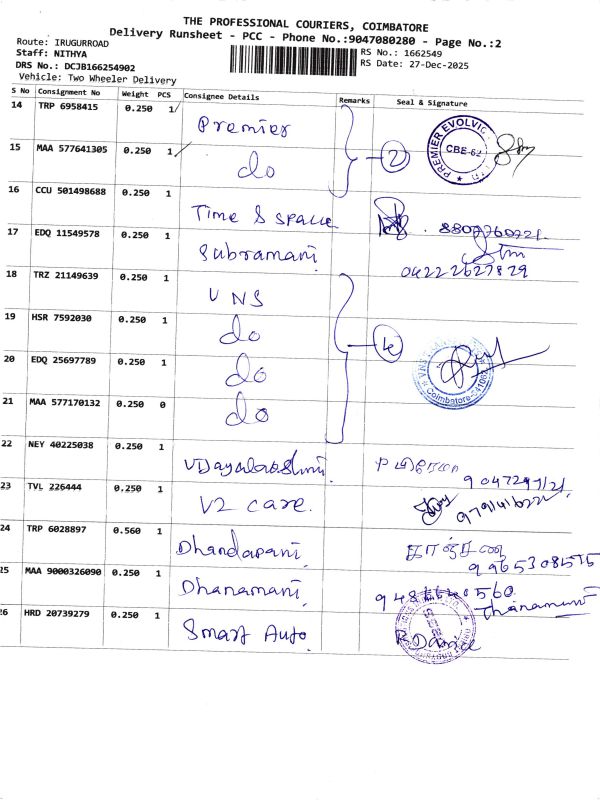 THE PROFESSIONAL COURIERS, COIMBATORE
Delivery Runsheet - PCC - Phone No.:9047080280 - Page No.:2
Route: IRUGURROAD
Staff: NITHYA
DRS No.: DCJB166254902
Vehicle: Two Wheeler Delivery
RS No.: 1662549
RS Date: 27-Dec-2025
S No Consignment No Weight PCS Consignee Details Remarks Seal & Signature
14 TRP 6958415 0.250 1 Premier
15 MAA 577641305 0.250 1 do 2
PREMIER EVOLVIC
CBE-62
16 CCU 501498688 0.250 1 Time & space
17 EDQ 11549578 0.250 1 Subramani
04222627829
18 TRZ 21149639 0.250 1 VNS
19 HSR 7592030 0.250 1 do 4
20 EDQ 25697789 0.250 1 do
VNS
Coimbatore-641062
21 MAA 577170132 0.250 0 do
22 NEY 40225038 0.250 1 VDayalakshmi
23 TVL 226444 0.250 1 V2 care.
24 TRP 6028897 0.560 1 Dhandapani
9965308575
25 MAA 9000326090 0.250 1 Dhanamani
Thanamani
26 HRD 20739279 0.250 1 Smart Auto